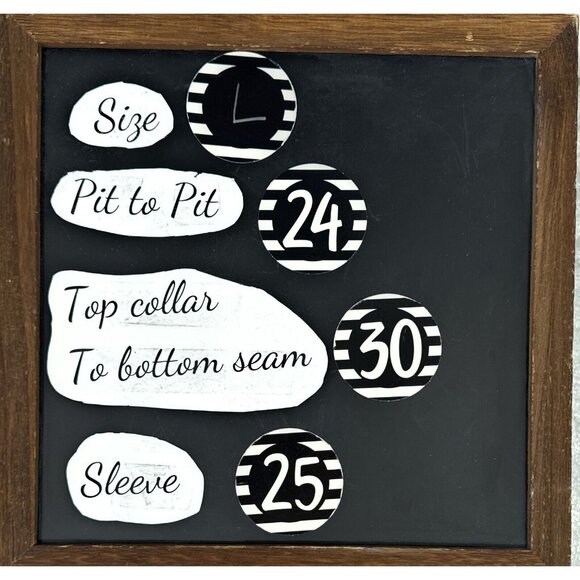 Size L
Pit to Pit 24
Top collar
To bottom seam 30
Sleeve 25